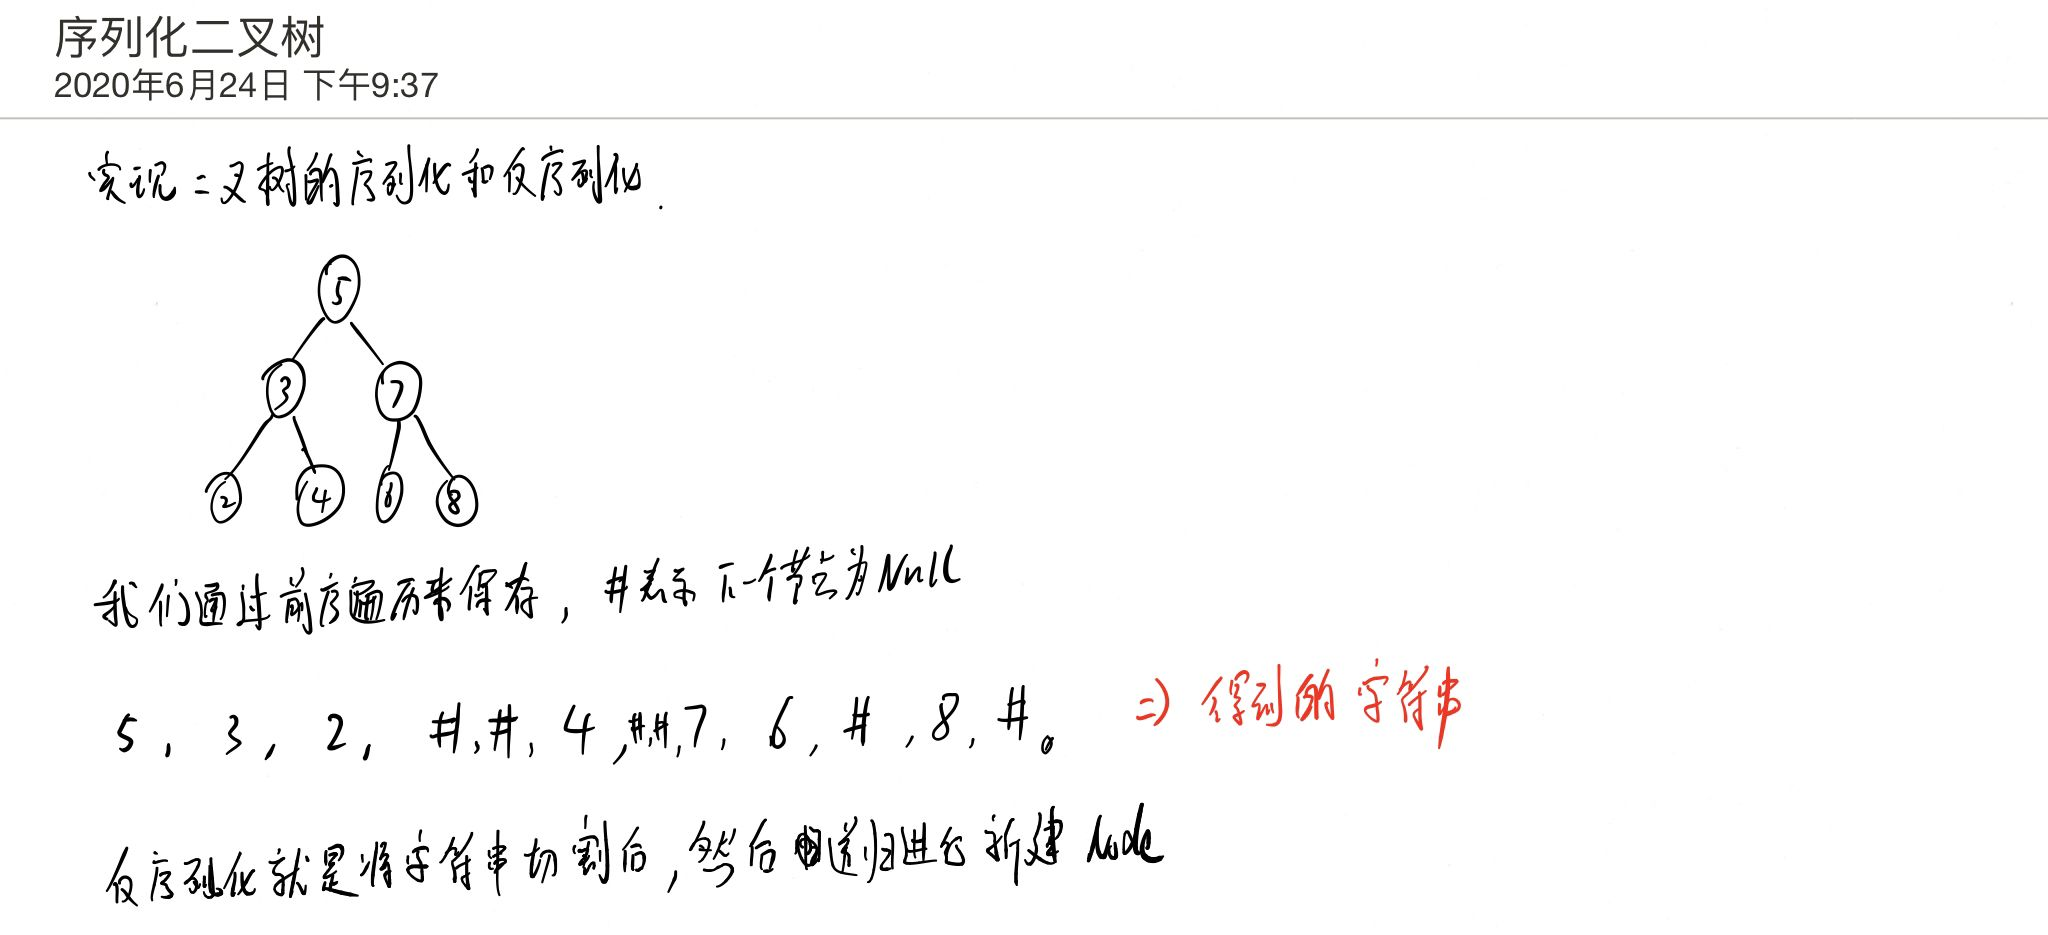 序列化二叉树
2020年6月24日 下午9:37
实现二叉树的序列化和反序列化.
5
3 7
2 4 6 8
我们通过前序遍历来保存, #表示下一个节点为Null
5, 3, 2, #,#, 4,#,#,7, 6, #,8, #。 => 得到的字符串
反序列化就是将字符串切割后,然后递归进行新建Node